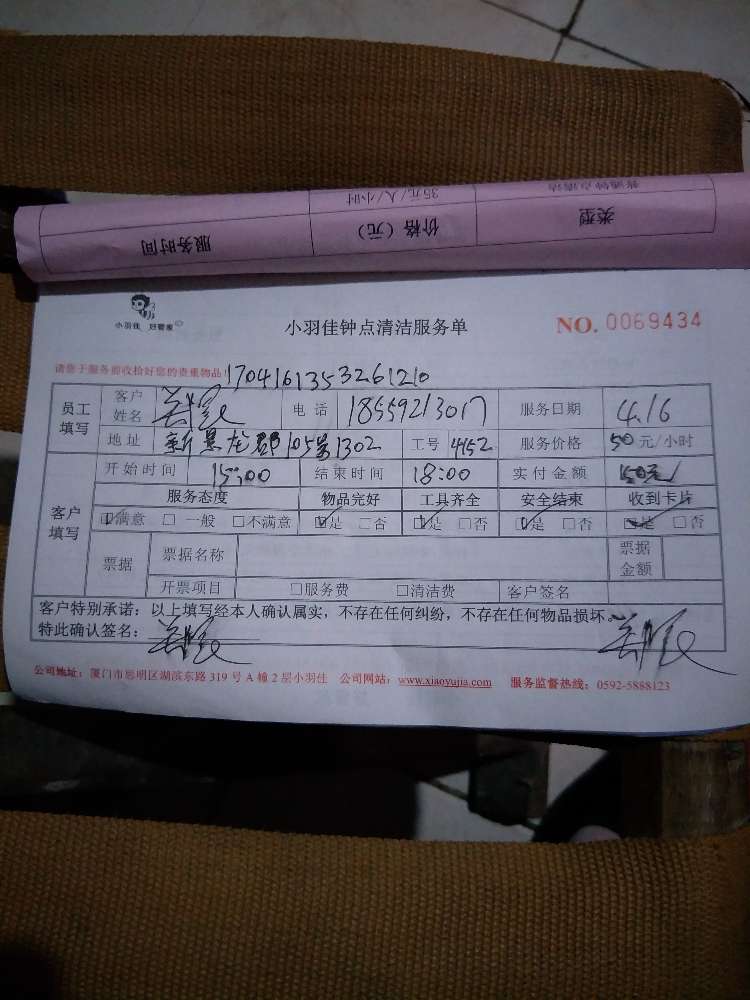 服务时间 价格（元） 类型
35元/人/小时 普通钟点清洁
小羽佳 好管家
小羽佳钟点清洁服务单 NO. 0069434
请您于服务前收拾好您的贵重物品！ 1704161353261210
员工填写 客户姓名 电话 18559213017 服务日期 4.16
地址 新景龙郡105号1302 工号 4152 服务价格 50元/小时
客户填写 开始时间 15:00 结束时间 18:00 实付金额 150元
服务态度 物品完好 工具齐全 安全结束 收到卡片
☑满意 □一般 □不满意 ☑是 □否 ☑是 □否 ☑是 □否 ☑是 □否
票据 票据名称 票据金额
开票项目 □服务费 □清洁费 客户签名
客户特别承诺：以上填写经本人确认属实，不存在任何纠纷，不存在任何物品损坏。
特此确认签名：
公司地址：厦门市思明区湖滨东路319号A幢2层小羽佳 公司网站：www.xiaoyujia.com 服务监督热线：0592-5888123